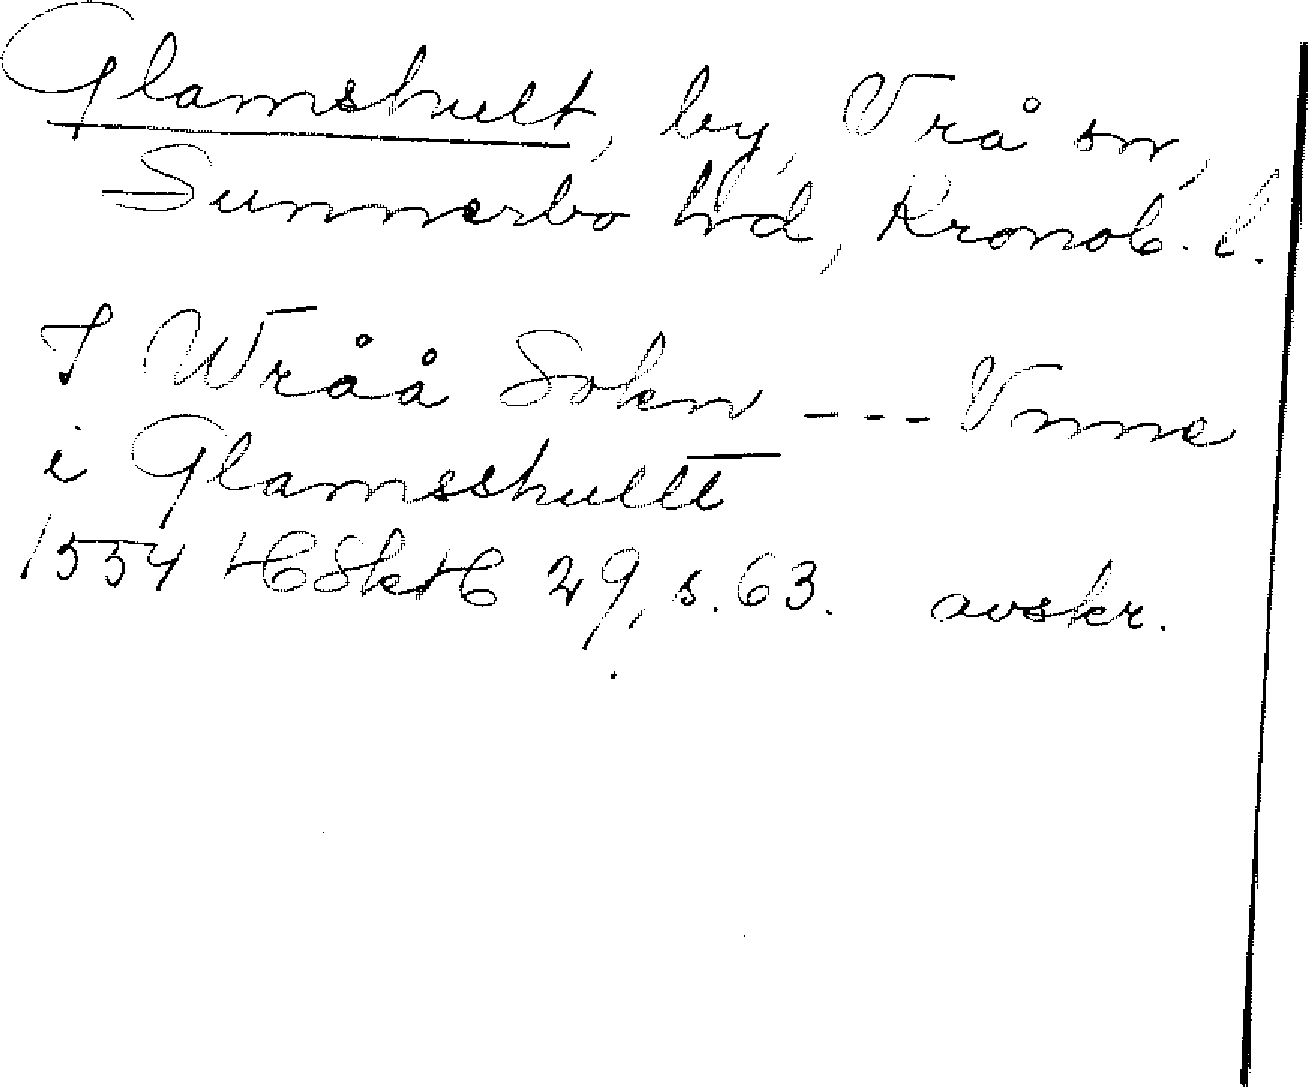 Glamshult, by, Vrå sn,
Sunnerbo hd, Kronob. l.
I Wråå Sokn --- Vnne
i Glamsshultt
1554 HSkH 29, s. 63. avskr.